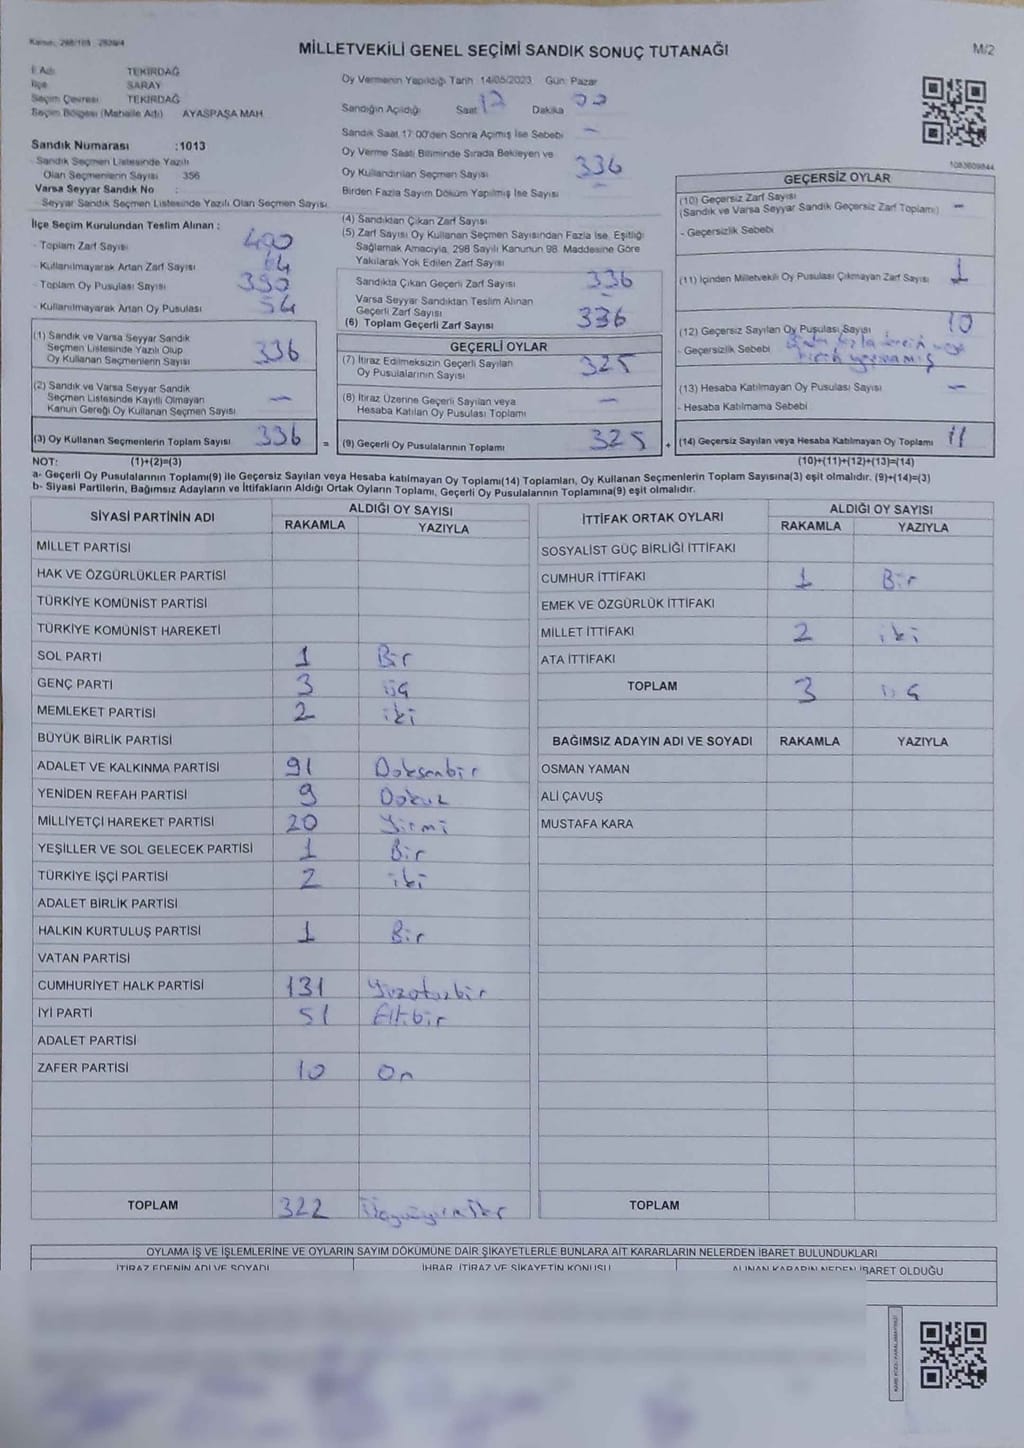 MİLLETVEKİLİ GENEL SEÇİMİ SANDIK SONUÇ TUTANAĞI
M/2
İl Adı TEKİRDAĞ
İlçe SARAY
Seçim Çevresi TEKİRDAĞ
Seçim Bölgesi (Mahalle Adı) AYASPAŞA MAH
Sandık Numarası :1013
- Sandık Seçmen Listesinde Yazılı
Olan Seçmenlerin Sayısı 356
Varsa Seyyar Sandık No :
- Seyyar Sandık Seçmen Listesinde Yazılı Olan Seçmen Sayısı
Oy Vermenin Yapıldığı Tarih 14/05/2023 Gün: Pazar
Sandığın Açıldığı Saat 17 Dakika
Sandık Saat 17:00'den Sonra Açılmış İse Sebebi —
Oy Verme Saati Bitiminde Sırada Bekleyen ve
Oy Kullandırılan Seçmen Sayısı 336
Birden Fazla Sayım Döküm Yapılmış İse Sayısı —
1083609844
İlçe Seçim Kurulundan Teslim Alınan :
- Toplam Zarf Sayısı
- Kullanılmayarak Artan Zarf Sayısı 64
- Toplam Oy Pusulası Sayısı
- Kullanılmayarak Artan Oy Pusulası 54
(1) Sandık ve Varsa Seyyar Sandık
Seçmen Listesinde Yazılı Olup
Oy Kullanan Seçmenlerin Sayısı 336
(2) Sandık ve Varsa Seyyar Sandık
Seçmen Listesinde Kayıtlı Olmayan
Kanun Gereği Oy Kullanan Seçmen Sayısı —
(3) Oy Kullanan Seçmenlerin Toplam Sayısı 336 =
(4) Sandıktan Çıkan Zarf Sayısı
(5) Zarf Sayısı Oy Kullanan Seçmen Sayısından Fazla İse, Eşitliği
Sağlamak Amacıyla, 298 Sayılı Kanunun 98. Maddesine Göre
Yakılarak Yok Edilen Zarf Sayısı
Sandıkta Çıkan Geçerli Zarf Sayısı 336
Varsa Seyyar Sandıktan Teslim Alınan —
Geçerli Zarf Sayısı
(6) Toplam Geçerli Zarf Sayısı 336
GEÇERLİ OYLAR
(7) İtiraz Edilmeksizin Geçerli Sayılan
Oy Pusulalarının Sayısı 325
(8) İtiraz Üzerine Geçerli Sayılan veya
Hesaba Katılan Oy Pusulası Toplamı —
(9) Geçerli Oy Pusulalarının Toplamı 325 +
GEÇERSİZ OYLAR
(10) Geçersiz Zarf Sayısı
(Sandık ve Varsa Seyyar Sandık Geçersiz Zarf Toplamı) —
- Geçersizlik Sebebi
(11) İçinden Milletvekili Oy Pusulası Çıkmayan Zarf Sayısı 1
(12) Geçersiz Sayılan Oy Pusulası Sayısı 10
- Geçersizlik Sebebi
(13) Hesaba Katılmayan Oy Pusulası Sayısı —
- Hesaba Katılmama Sebebi
(14) Geçersiz Sayılan veya Hesaba Katılmayan Oy Toplamı 11
NOT: (1)+(2)=(3) (10)+(11)+(12)+(13)=(14)
a- Geçerli Oy Pusulalarının Toplamı(9) ile Geçersiz Sayılan veya Hesaba katılmayan Oy Toplamı(14) Toplamları, Oy Kullanan Seçmenlerin Toplam Sayısına(3) eşit olmalıdır. (9)+(14)=(3)
b- Siyasi Partilerin, Bağımsız Adayların ve İttifakların Aldığı Ortak Oyların Toplamı, Geçerli Oy Pusulalarının Toplamına(9) eşit olmalıdır.
SİYASİ PARTİNİN ADI ALDIĞI OY SAYISI
RAKAMLA YAZIYLA
MİLLET PARTİSİ
HAK VE ÖZGÜRLÜKLER PARTİSİ
TÜRKİYE KOMÜNİST PARTİSİ
TÜRKİYE KOMÜNİST HAREKETİ
SOL PARTİ 1 Bir
GENÇ PARTİ 3 üç
MEMLEKET PARTİSİ 2 iki
BÜYÜK BİRLİK PARTİSİ
ADALET VE KALKINMA PARTİSİ 91 Doksanbir
YENİDEN REFAH PARTİSİ 9 Dokuz
MİLLİYETÇİ HAREKET PARTİSİ 20 Yirmi
YEŞİLLER VE SOL GELECEK PARTİSİ 1 Bir
TÜRKİYE İŞÇİ PARTİSİ 2 iki
ADALET BİRLİK PARTİSİ
HALKIN KURTULUŞ PARTİSİ 1 Bir
VATAN PARTİSİ
CUMHURİYET HALK PARTİSİ 131 Yüzotuzbir
İYİ PARTİ 51 Ellibir
ADALET PARTİSİ
ZAFER PARTİSİ 10 On
TOPLAM 322
İTTİFAK ORTAK OYLARI ALDIĞI OY SAYISI
RAKAMLA YAZIYLA
SOSYALİST GÜÇ BİRLİĞİ İTTİFAKI
CUMHUR İTTİFAKI 1 Bir
EMEK VE ÖZGÜRLÜK İTTİFAKI
MİLLET İTTİFAKI 2 iki
ATA İTTİFAKI
TOPLAM 3 üç
BAĞIMSIZ ADAYIN ADI VE SOYADI RAKAMLA YAZIYLA
OSMAN YAMAN
ALİ ÇAVUŞ
MUSTAFA KARA
TOPLAM
OYLAMA İŞ VE İŞLEMLERİNE VE OYLARIN SAYIM DÖKÜMÜNE DAİR ŞİKAYETLERLE BUNLARA AİT KARARLARIN NELERDEN İBARET BULUNDUKLARI
İTİRAZ EDENİN ADI VE SOYADI İHBAR, İTİRAZ VE ŞİKAYETİN KONUSU ALINAN KARARIN NEDEN İBARET OLDUĞU